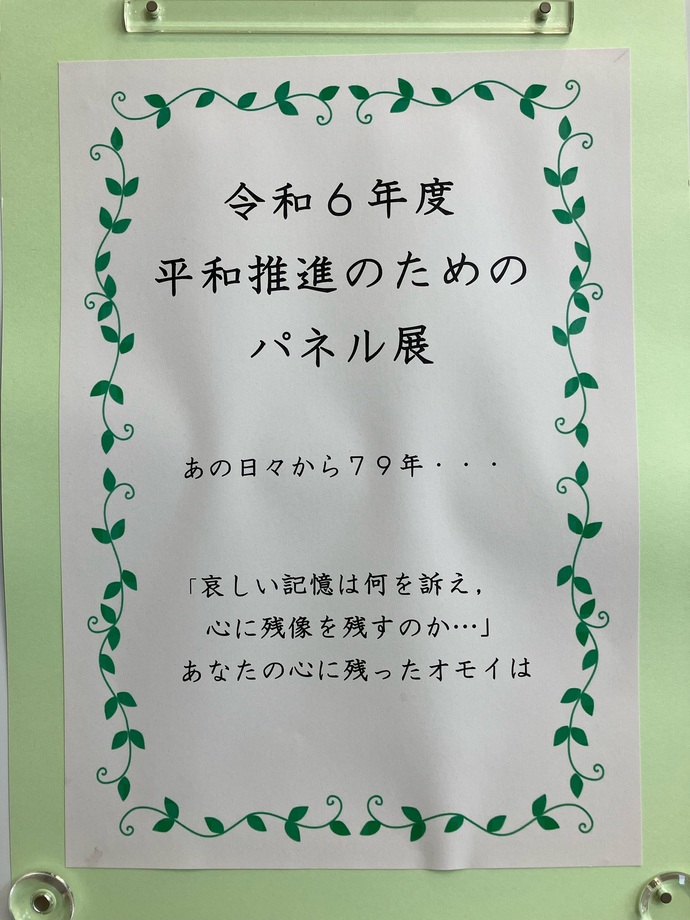 令和６年度
平和推進のための
パネル展
あの日々から７９年・・・
「哀しい記憶は何を訴え，
心に残像を残すのか…」
あなたの心に残ったオモイは